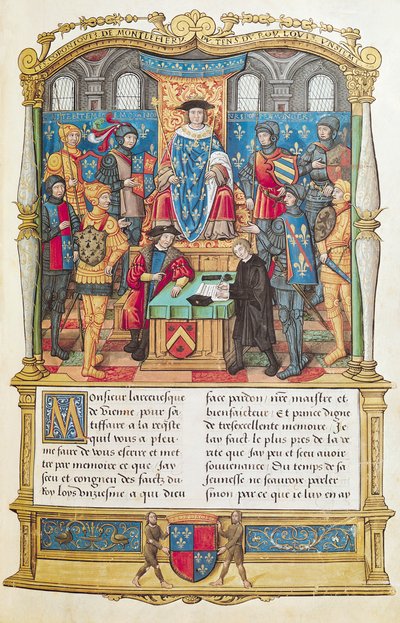 Monsieur larcevesque
de Vienne pour sa-
tiffaire a la reqste
quil vous a pleu
me faire de vous escrire et met
tre par memoire ce que Jay
sceu et congneu des faictz du
Roy Loys Unziesme a qui dieu
face pardon / nre maistre et
bienfaicteur / Et prince digne
de tresexcellente memoire / Je
lay faict le plus pres de la ve
rite que Jay peu et sceu avoir
souvenance / Du temps de sa
Jeunesse ne scauroix parler
sinon par ce que ie luy en ay